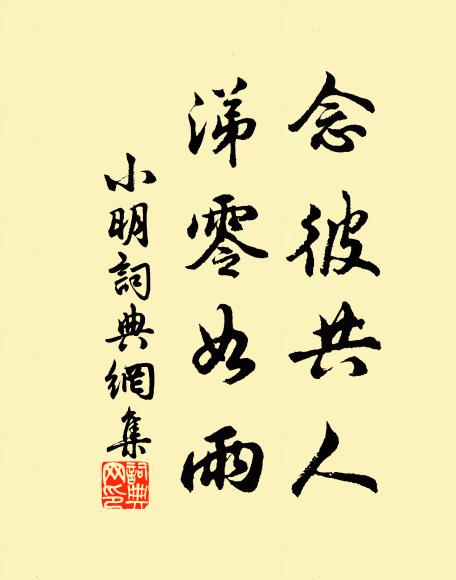 念彼共人
涕零如雨
小明詞典網集
詞典网印